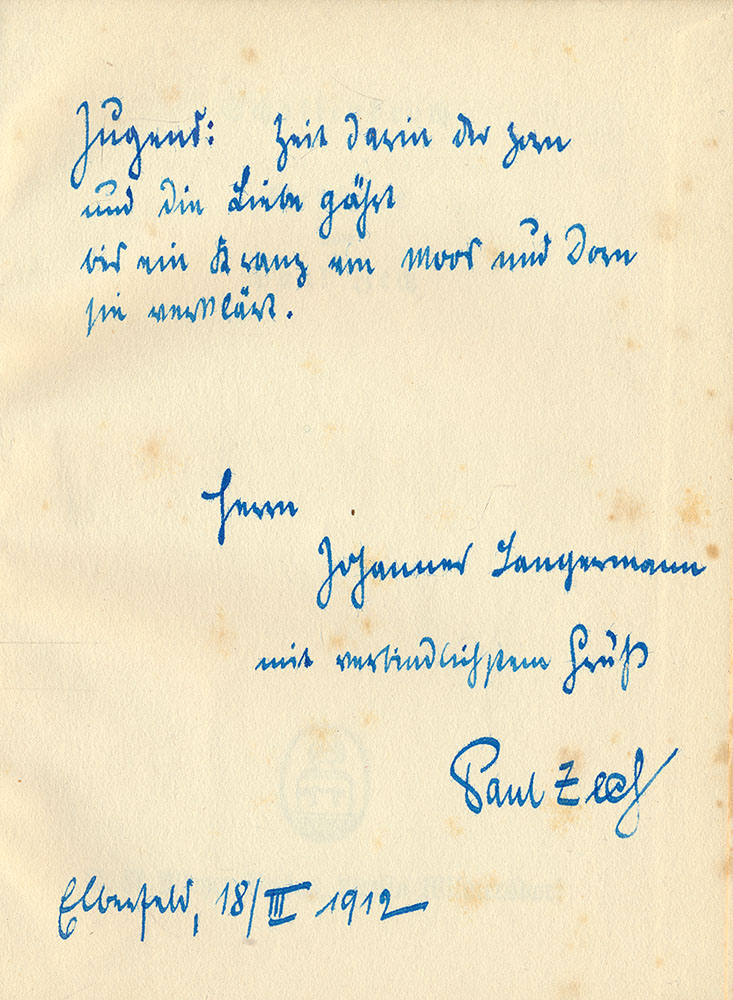 Jugend: Zeit darin der Zorn
und die Liebe gährt
bis ein Kranz von Moos und Dorn
sie verklärt.
Herrn
Johannes Langermann
mit verbindlichstem Gruß
Paul Zech
Elberfeld, 18/III 1912